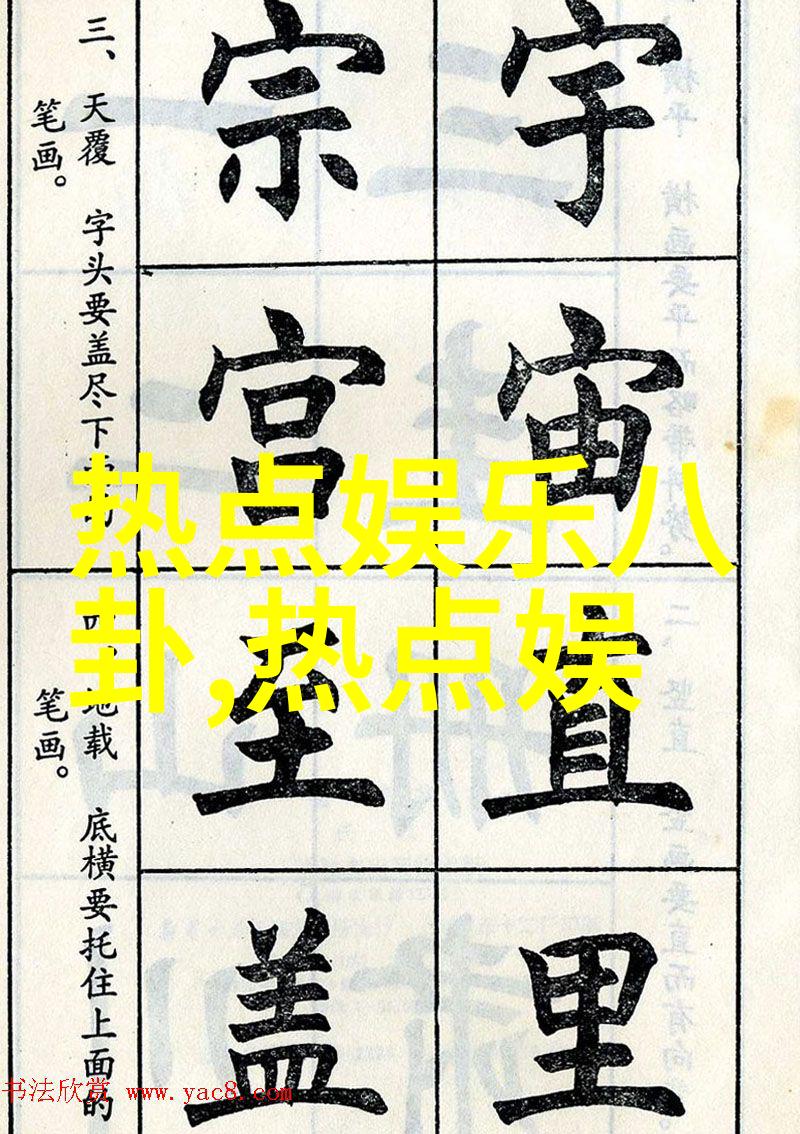 宇
宙
直
里
宗
宫
至
盖
三、天覆 字头要盖尽下
笔画。
地载 底横要托住上面的
笔画。
热点娱乐八
卦,热点娱
书法欣赏 www.yac8.com